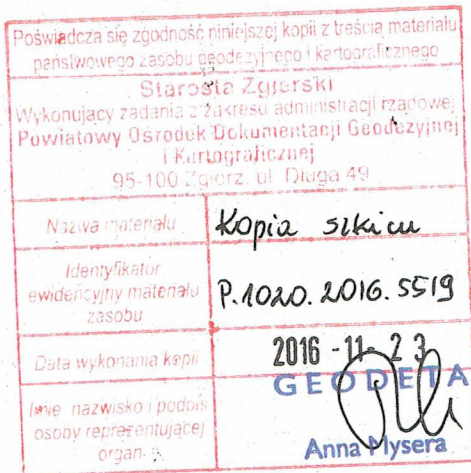 Poświadcza się zgodność niniejszej kopii z treścią materiału
państwowego zasobu geodezyjnego i kartograficznego
Starosta Zgierski
Wykonujący zadania z zakresu administracji rządowej
Powiatowy Ośrodek Dokumentacji Geodezyjnej
i Kartograficznej
95-100 Zgierz, ul. Długa 49
Nazwa materiału
Kopia szkicu
Identyfikator
ewidencyjny materiału
zasobu
P.1020.2016.5519
Data wykonania kopii
2016 -11- 23
Imię, nazwisko i podpis
osoby reprezentującej
organ
GEODETA
Anna Mysera